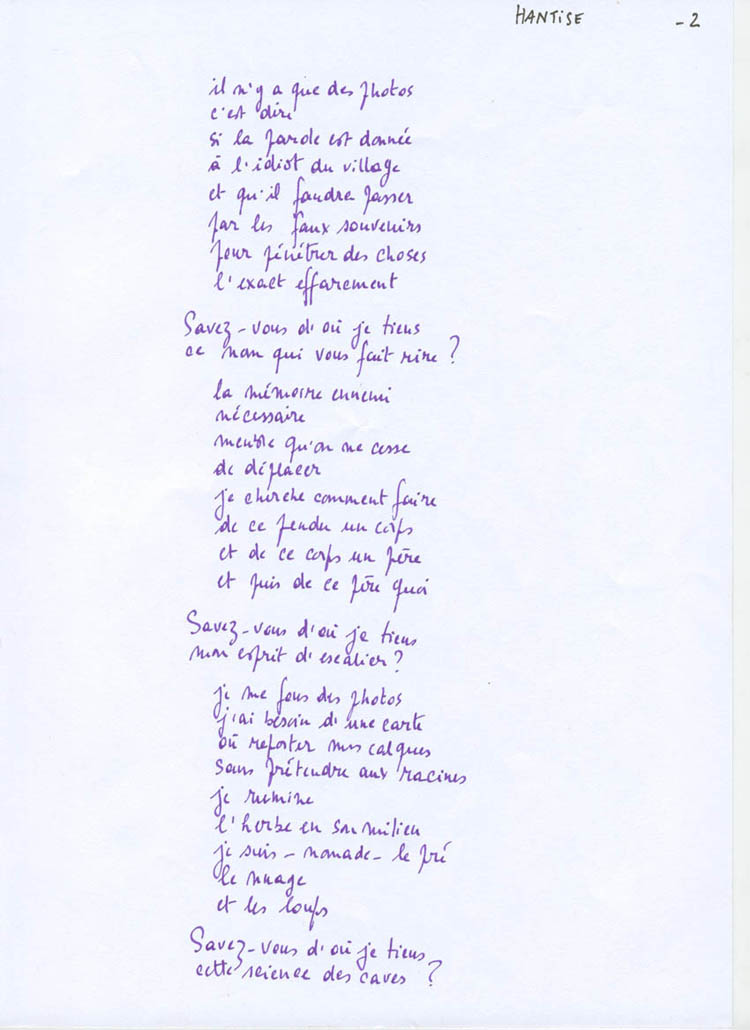 HANTISE -2
il n'y a que des photos
c'est dire
si la parole est donnée
à l'idiot du village
et qu'il faudra passer
par les faux souvenirs
pour pénétrer des choses
l'exact effarement
Savez-vous d'où je tiens
ce nom qui vous fait rire ?
la mémoire ennemi
nécessaire
meuble qu'on ne cesse
de déplacer
je cherche comment faire
de ce pendu un corps
et de ce corps un père
et puis de ce père quoi
Savez-vous d'où je tiens
mon esprit d'escalier ?
je me fous des photos
j'ai besoin d'une carte
où reporter mes calques
sans prétendre aux racines
je rumine
l'herbe en son milieu
je suis - nomade - le pré
le nuage
et les loups
Savez-vous d'où je tiens
cette science des caves ?